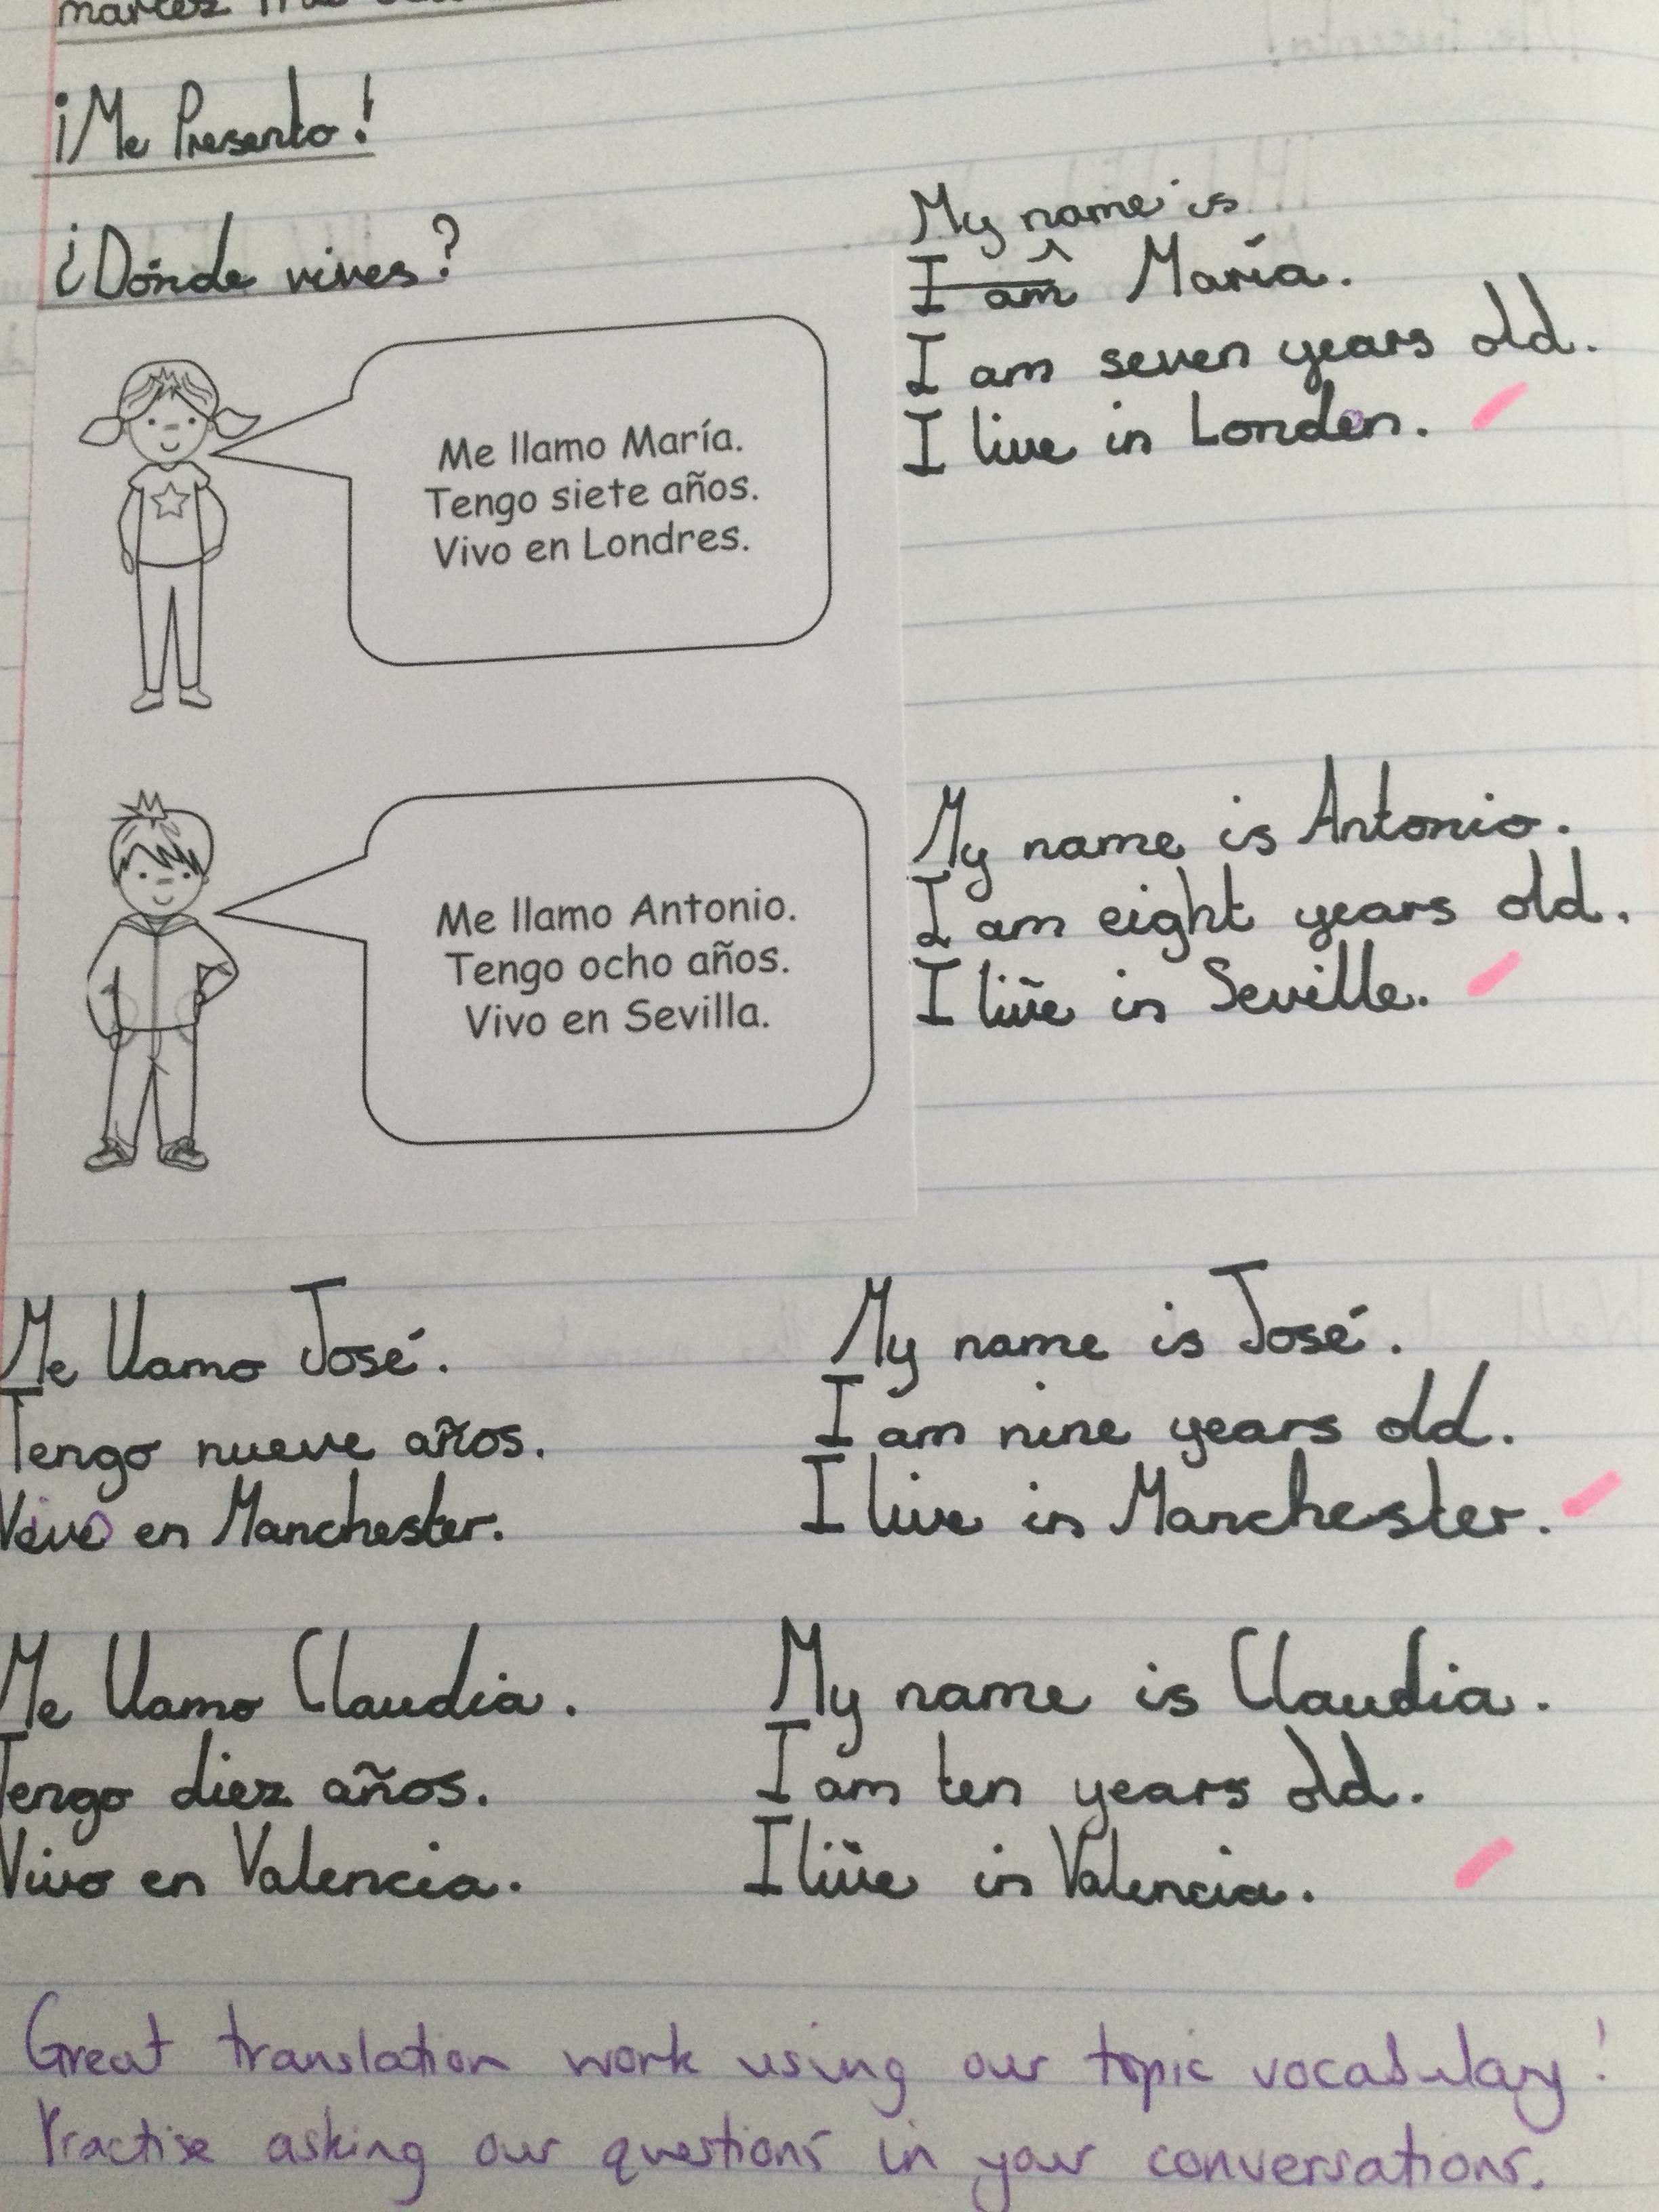 martes
¡Me Presento!
¿Dónde vives?
Me llamo María.
Tengo siete años.
Vivo en Londres.
My name is
I am María.
I am seven years old.
I live in London.
Me llamo Antonio.
Tengo ocho años.
Vivo en Sevilla.
My name is Antonio.
I am eight years old.
I live in Seville.
Me llamo José.
Tengo nueve años.
Vivo en Manchester.
My name is José.
I am nine years old.
I live in Manchester.
Me llamo Claudia.
Tengo diez años.
Vivo en Valencia.
My name is Claudia.
I am ten years old.
I live in Valencia.
Great translation work using our topic vocabulary!
Practise asking our questions in your conversations.